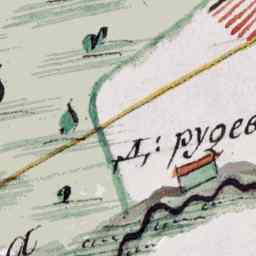 Д: рудев